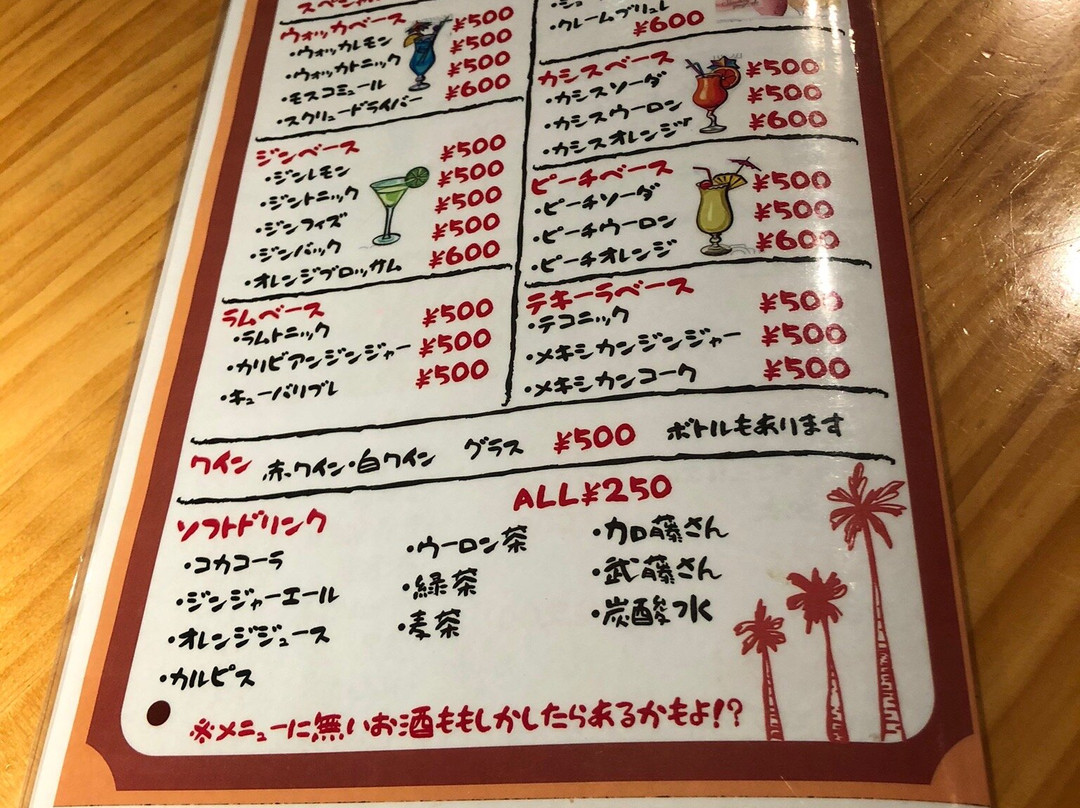 スペシャル
ウォッカベース
・ウォッカレモン ¥500
・ウォッカトニック ¥500
・モスコミュール ¥500
・スクリュードライバー ¥600
ジンベース
・ジンレモン ¥500
・ジントニック ¥500
・ジンフィズ ¥500
・ジンバック ¥500
・オレンジブロッサム ¥600
ラムベース
・ラムトニック ¥500
・カリビアンジンジャー ¥500
・キューバリブレ ¥500
・クレームブリュレ
¥600
カシスベース
・カシスソーダ ¥500
・カシスウーロン ¥500
・カシスオレンジ ¥600
ピーチベース
・ピーチソーダ ¥500
・ピーチウーロン ¥500
・ピーチオレンジ ¥600
テキーラベース
・テコニック ¥500
・メキシカンジンジャー ¥500
・メキシカンコーク ¥500
ワイン 赤ワイン・白ワイン グラス ¥500 ボトルもあります
ソフトドリンク ALL¥250
・コカコーラ
・ジンジャーエール
・オレンジジュース
・カルピス
・ウーロン茶
・緑茶
・麦茶
・加藤さん
・武藤さん
・炭酸水
※メニューに無いお酒ももしかしたらあるかもよ!?